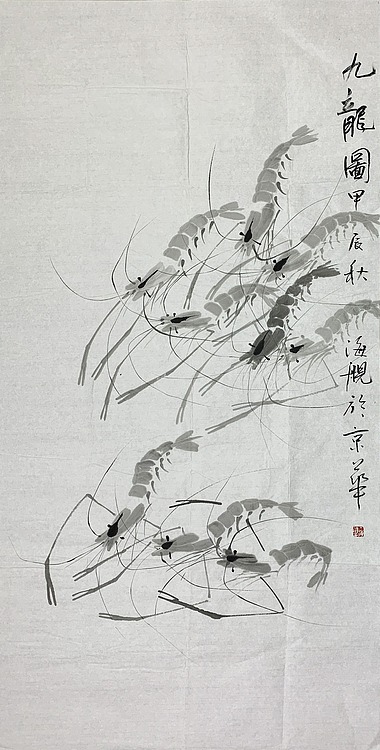 九龍圖甲辰秋 海舰於京華